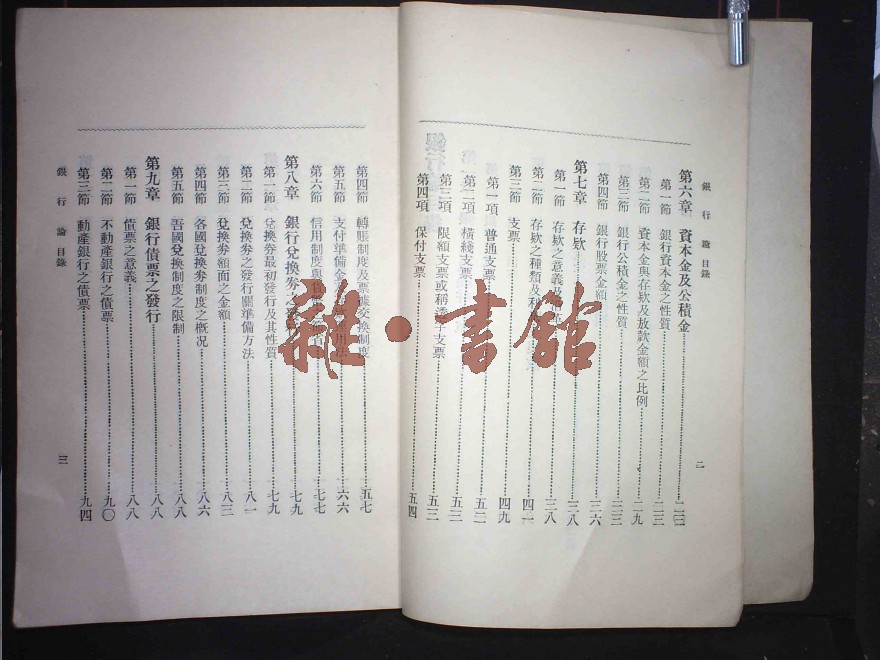 銀行論 目錄
二
第六章 資本金及公積金
第一節 銀行資本金之性質 二三
第二節 資本金與存欵及放款金額之比例 二九
第三節 銀行公積金之性質 三三
第四節 銀行股票金額 三六
第七章 存欵 三八
第一節 存欵之意義及 三八
第二節 存欵之種類及利 四一
第三節 支票 四九
第一項 普通支票 五二
第二項 橫綫支票 五三
第三項 限額支票或稱 支票 五三
第四項 保付支票 五四
第四節 轉賬制度及票據交換制度 五七
第五節 支付準備金 用法 六六
第六節 信用制度與 七七
第八章 銀行兌換券之發行 七九
第一節 兌換券最初發行及其性質 七九
第二節 兌換券之發行關準備方法 八一
第三節 兌換券額面之金額 八三
第四節 各國兌換券制度之槪况 八六
第五節 吾國兌換制度之限制 八八
第九章 銀行債票之發行 八八
第一節 債票之意義 八八
第二節 不動產銀行之債票 九〇
第三節 動產銀行之債票 九四
銀行論 目錄
三
雜·書館